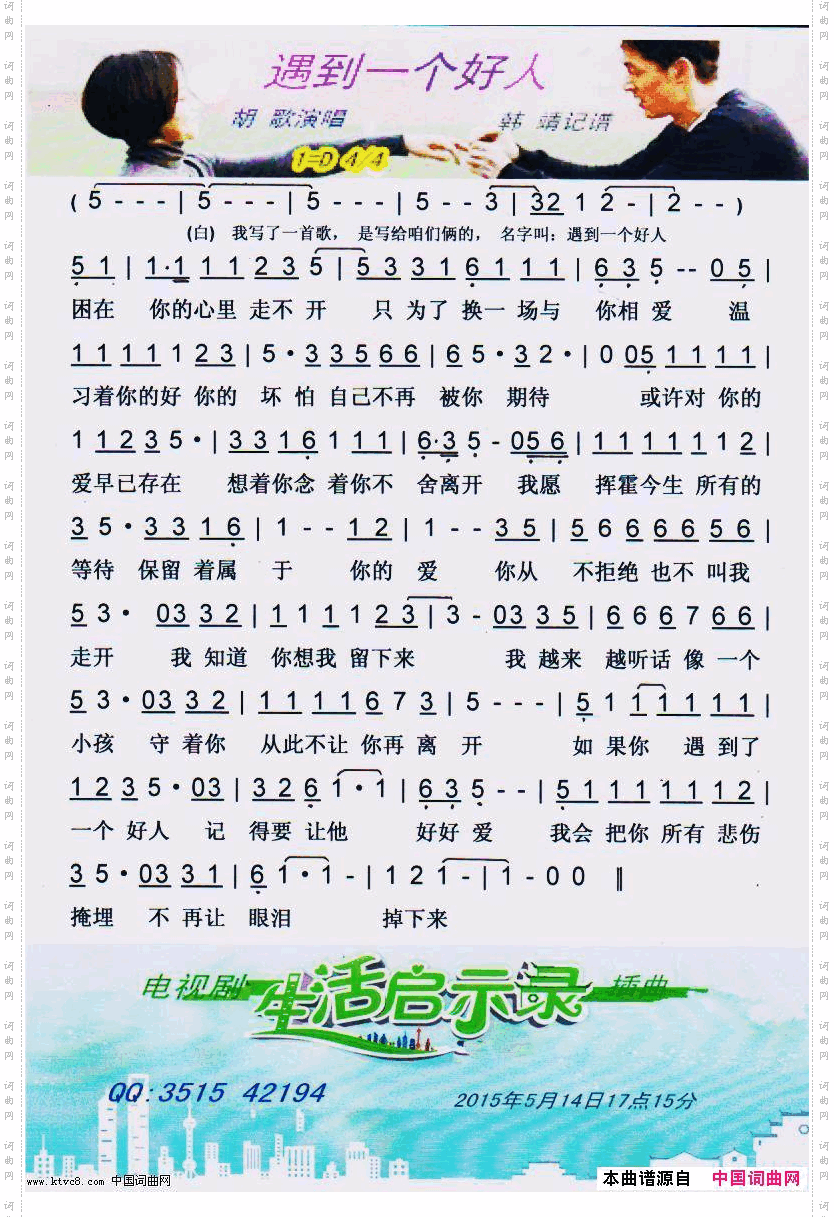 遇到一个好人
胡 歌演唱 韩 靖记谱
1=D 4/4
( 5 - - - | 5 - - - | 5 - - - | 5 - - 3 | 32 1 2 - | 2 - - )
(白) 我写了一首歌， 是写给咱们俩的， 名字叫：遇到一个好人
5 1 | 1·1 1 1 2 3 5 | 5 3 3 1 6 1 1 1 | 6 3 5 -- 0 5 |
困在 你的心里 走不 开 只 为了 换一 场与 你相 爱 温
1 1 1 1 1 2 3 | 5 · 3 3 5 6 6 | 6 5 · 3 2 · | 0 05 1 1 1 1 |
习着你的好 你的 坏 怕 自己不再 被你 期待 或许对 你的
1 1 2 3 5 · | 3 3 1 6 1 1 1 | 6·3 5 - 05 6 | 1 1 1 1 1 1 2 |
爱早已存在 想着你念 着你不 舍离开 我愿 挥霍今生 所有的
3 5 · 3 3 1 6 | 1 - - 1 2 | 1 - - 3 5 | 5 6 6 6 6 5 6 |
等待 保留 着属 于 你的 爱 你从 不拒绝 也不 叫我
5 3 · 03 3 2 | 1 1 1 1 2 3 | 3 - 03 3 5 | 6 6 6 7 6 6 |
走开 我 知道 你想我 留下来 我 越来 越听话 像 一个
5 3 · 03 3 2 | 1 1 1 1 6 7 3 | 5 - - - | 5 1 1 1 1 1 1 |
小孩 守 着你 从此不让 你再 离 开 如 果你 遇 到了
1 2 3 5 · 03 | 3 2 6 1 · 1 | 6 3 5 - - | 5 1 1 1 1 1 1 2 |
一个 好人 记 得要 让他 好好 爱 我会 把你 所有 悲伤
3 5 · 03 3 1 | 6 1 · 1 - | 1 2 1 - | 1 - 0 0 ‖
掩埋 不 再让 眼泪 掉下来
电视剧 生活启示录 插曲
QQ:3515 42194 2015年5月14日17点15分
www.ktvc8.com 中国词曲网 本曲谱源自 中国词曲网